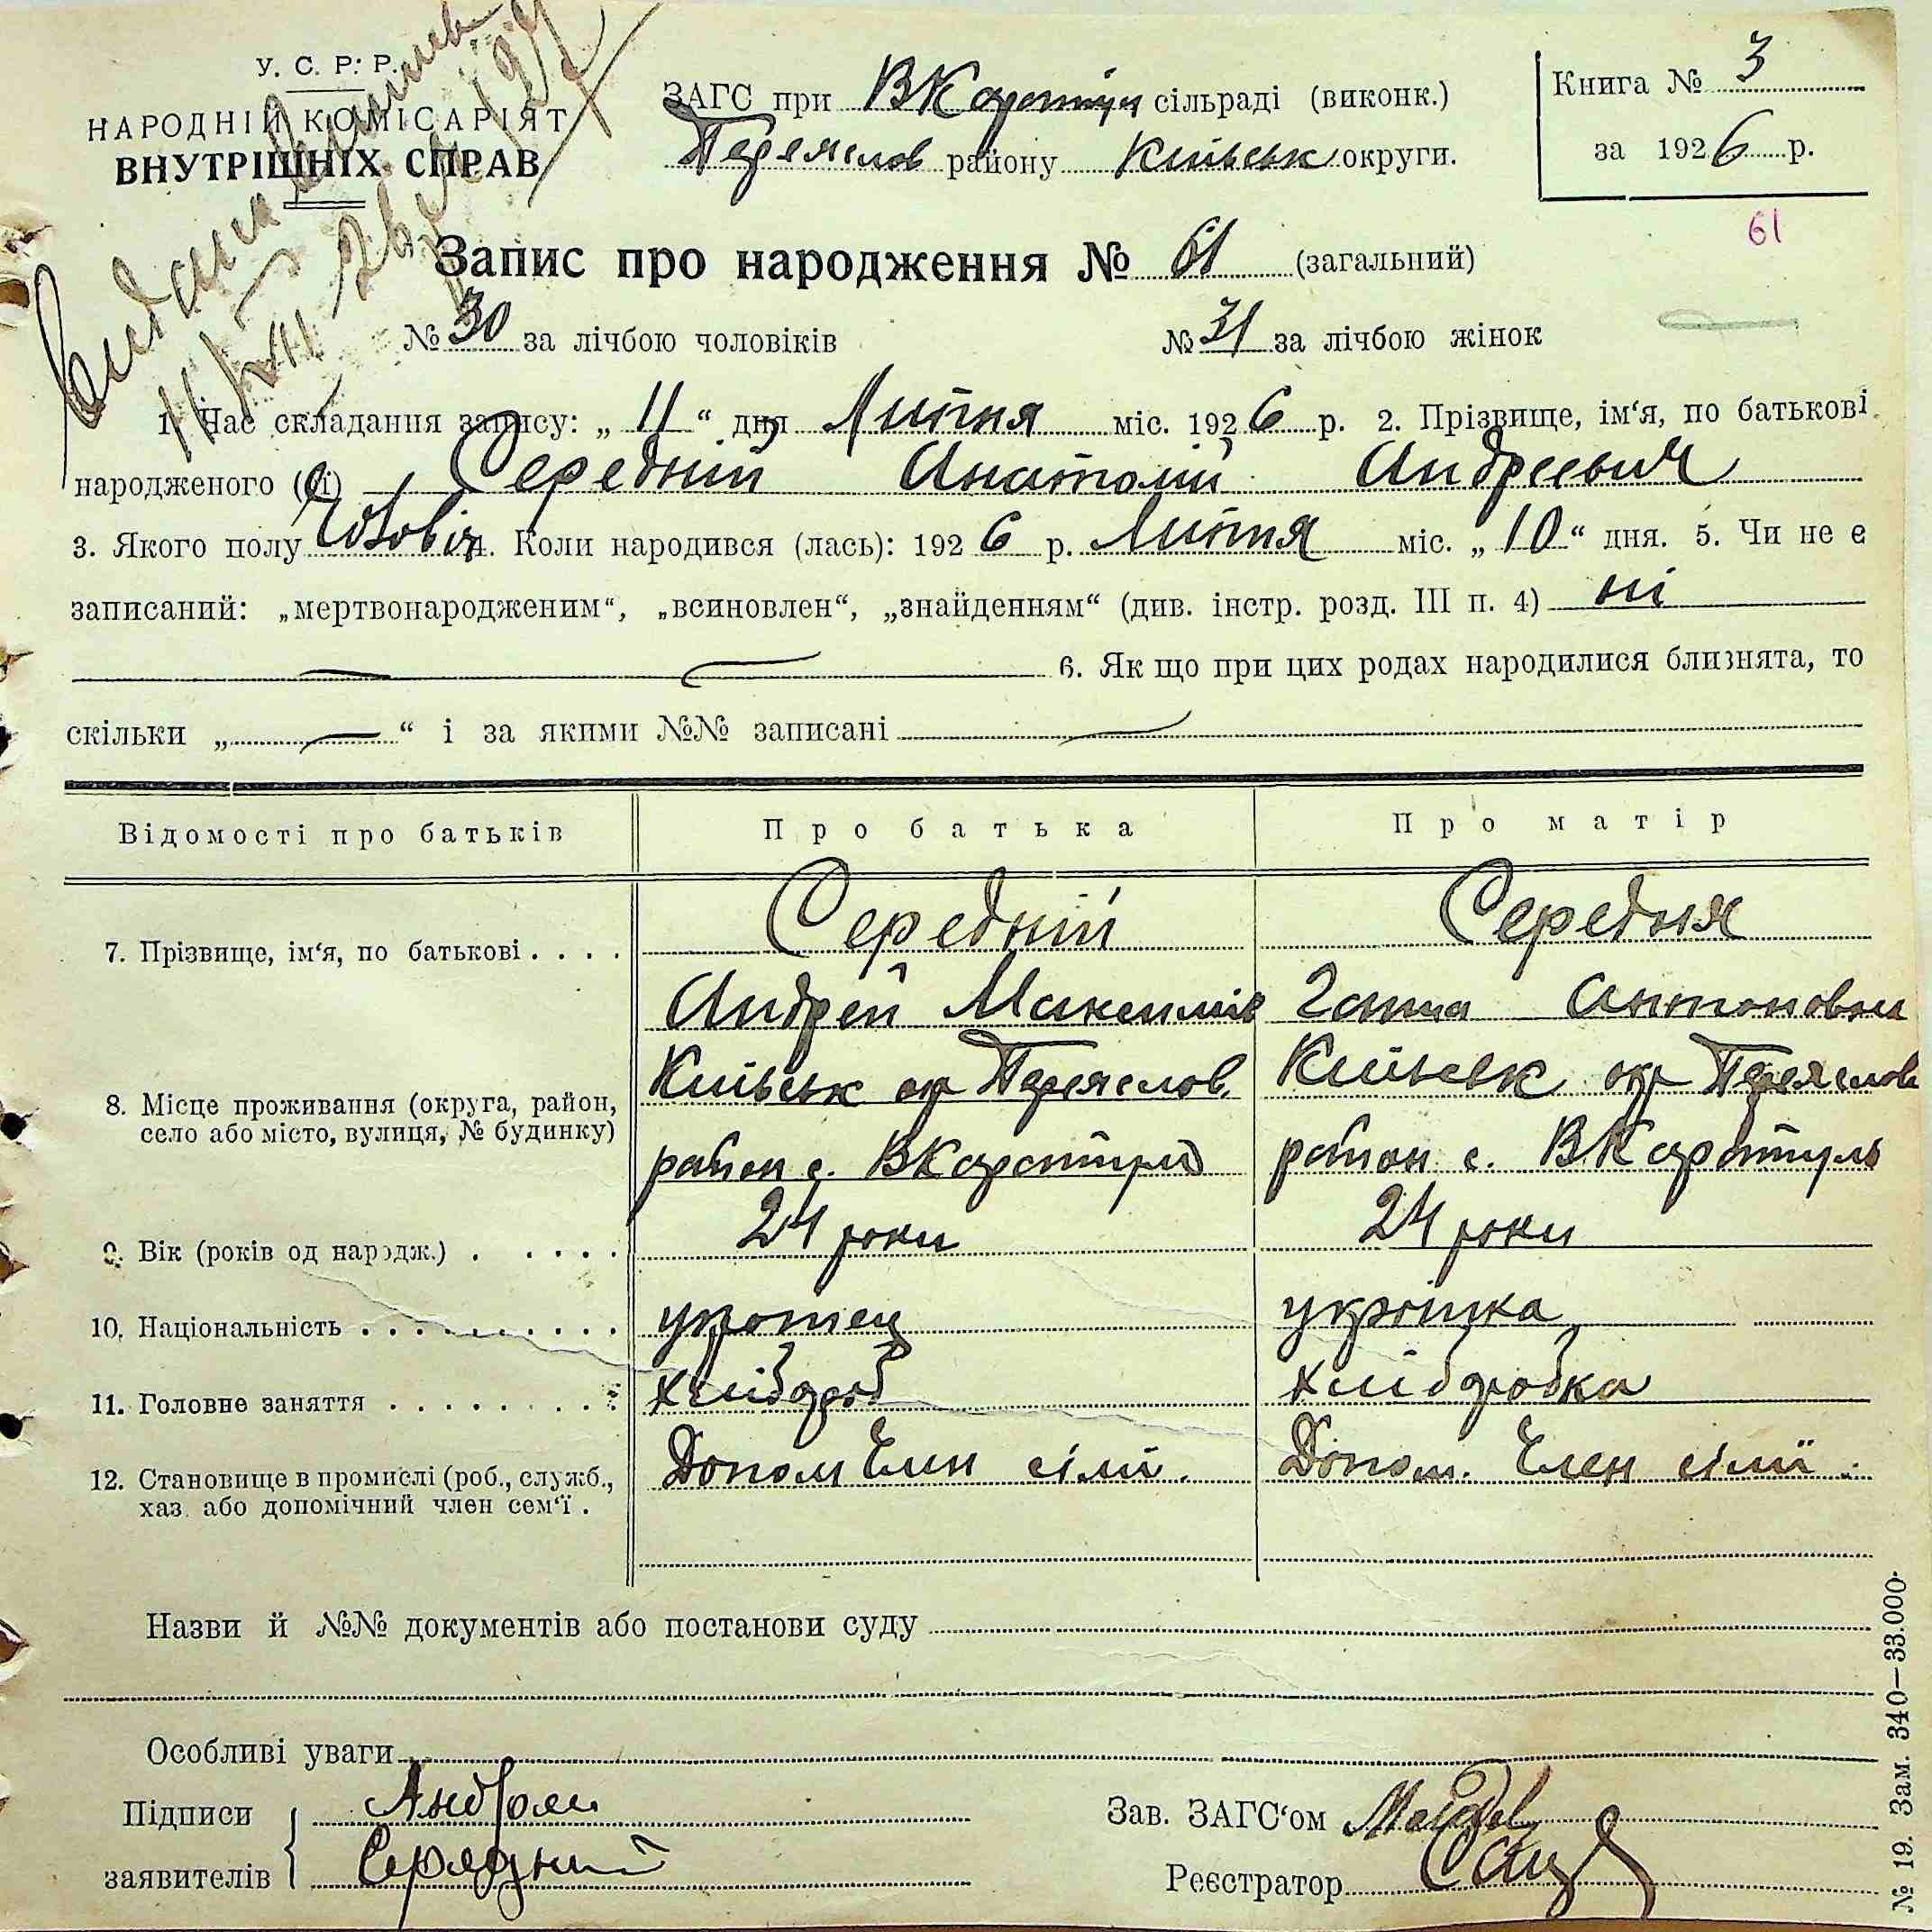 У. С. Р. Р.
НАРОДНІЙ КОМІСАРІЯТ
ВНУТРІШНІХ СПРАВ
ЗАГС при ВКаратул сільраді (виконк.)
Переяслов району Київськ округи.
Книга № 3
за 1926 р.
61
Запис про народження № 61 (загальний)
№ 30 за лічбою чоловіків № 31 за лічбою жінок
1. Час складання запису: „11“ дня Липня міс. 1926 р. 2. Прізвище, ім‘я, по батькові
народженого (ої) Середній Анатолій Андреевич
3. Якого полу Чоловіч 4. Коли народився (лась): 1926 р. Липня міс. „10“ дня. 5. Чи не є
записаний: „мертвонародженим“, „всиновлен“, „знайденням“ (див. інстр. розд. III п. 4) ні
6. Як що при цих родах народилися близнята, то
скільки „—“ і за якими №№ записані —
Відомості про батьків Про батька Про матір
7. Прізвище, ім‘я, по батькові . . . . Середній Середня
Андрей Максимів Ганна Антоновни
8. Місце проживання (округа, район, Київськ окр Переяслов. Київськ окр Переяслов
село або місто, вулиця, № будинку) район с. ВКаратул район с. ВКаратуль
9. Вік (років од народж.) . . . . . 24 роки 24 роки
10. Національність . . . . . . . . . . . украінец украінка
11. Головне заняття . . . . . . . . . хлібороб хліборобка
12. Становище в промислі (роб., служб., Допом Член сімї. Допом. Член сімї.
хаз. або допомічний член сем‘ї .
Назви й №№ документів або постанови суду
Особливі уваги
Підписи Андрей
заявителів Середний
Зав. ЗАГС‘ом
Реєстратор
№ 19. Зам. 340—33.000.